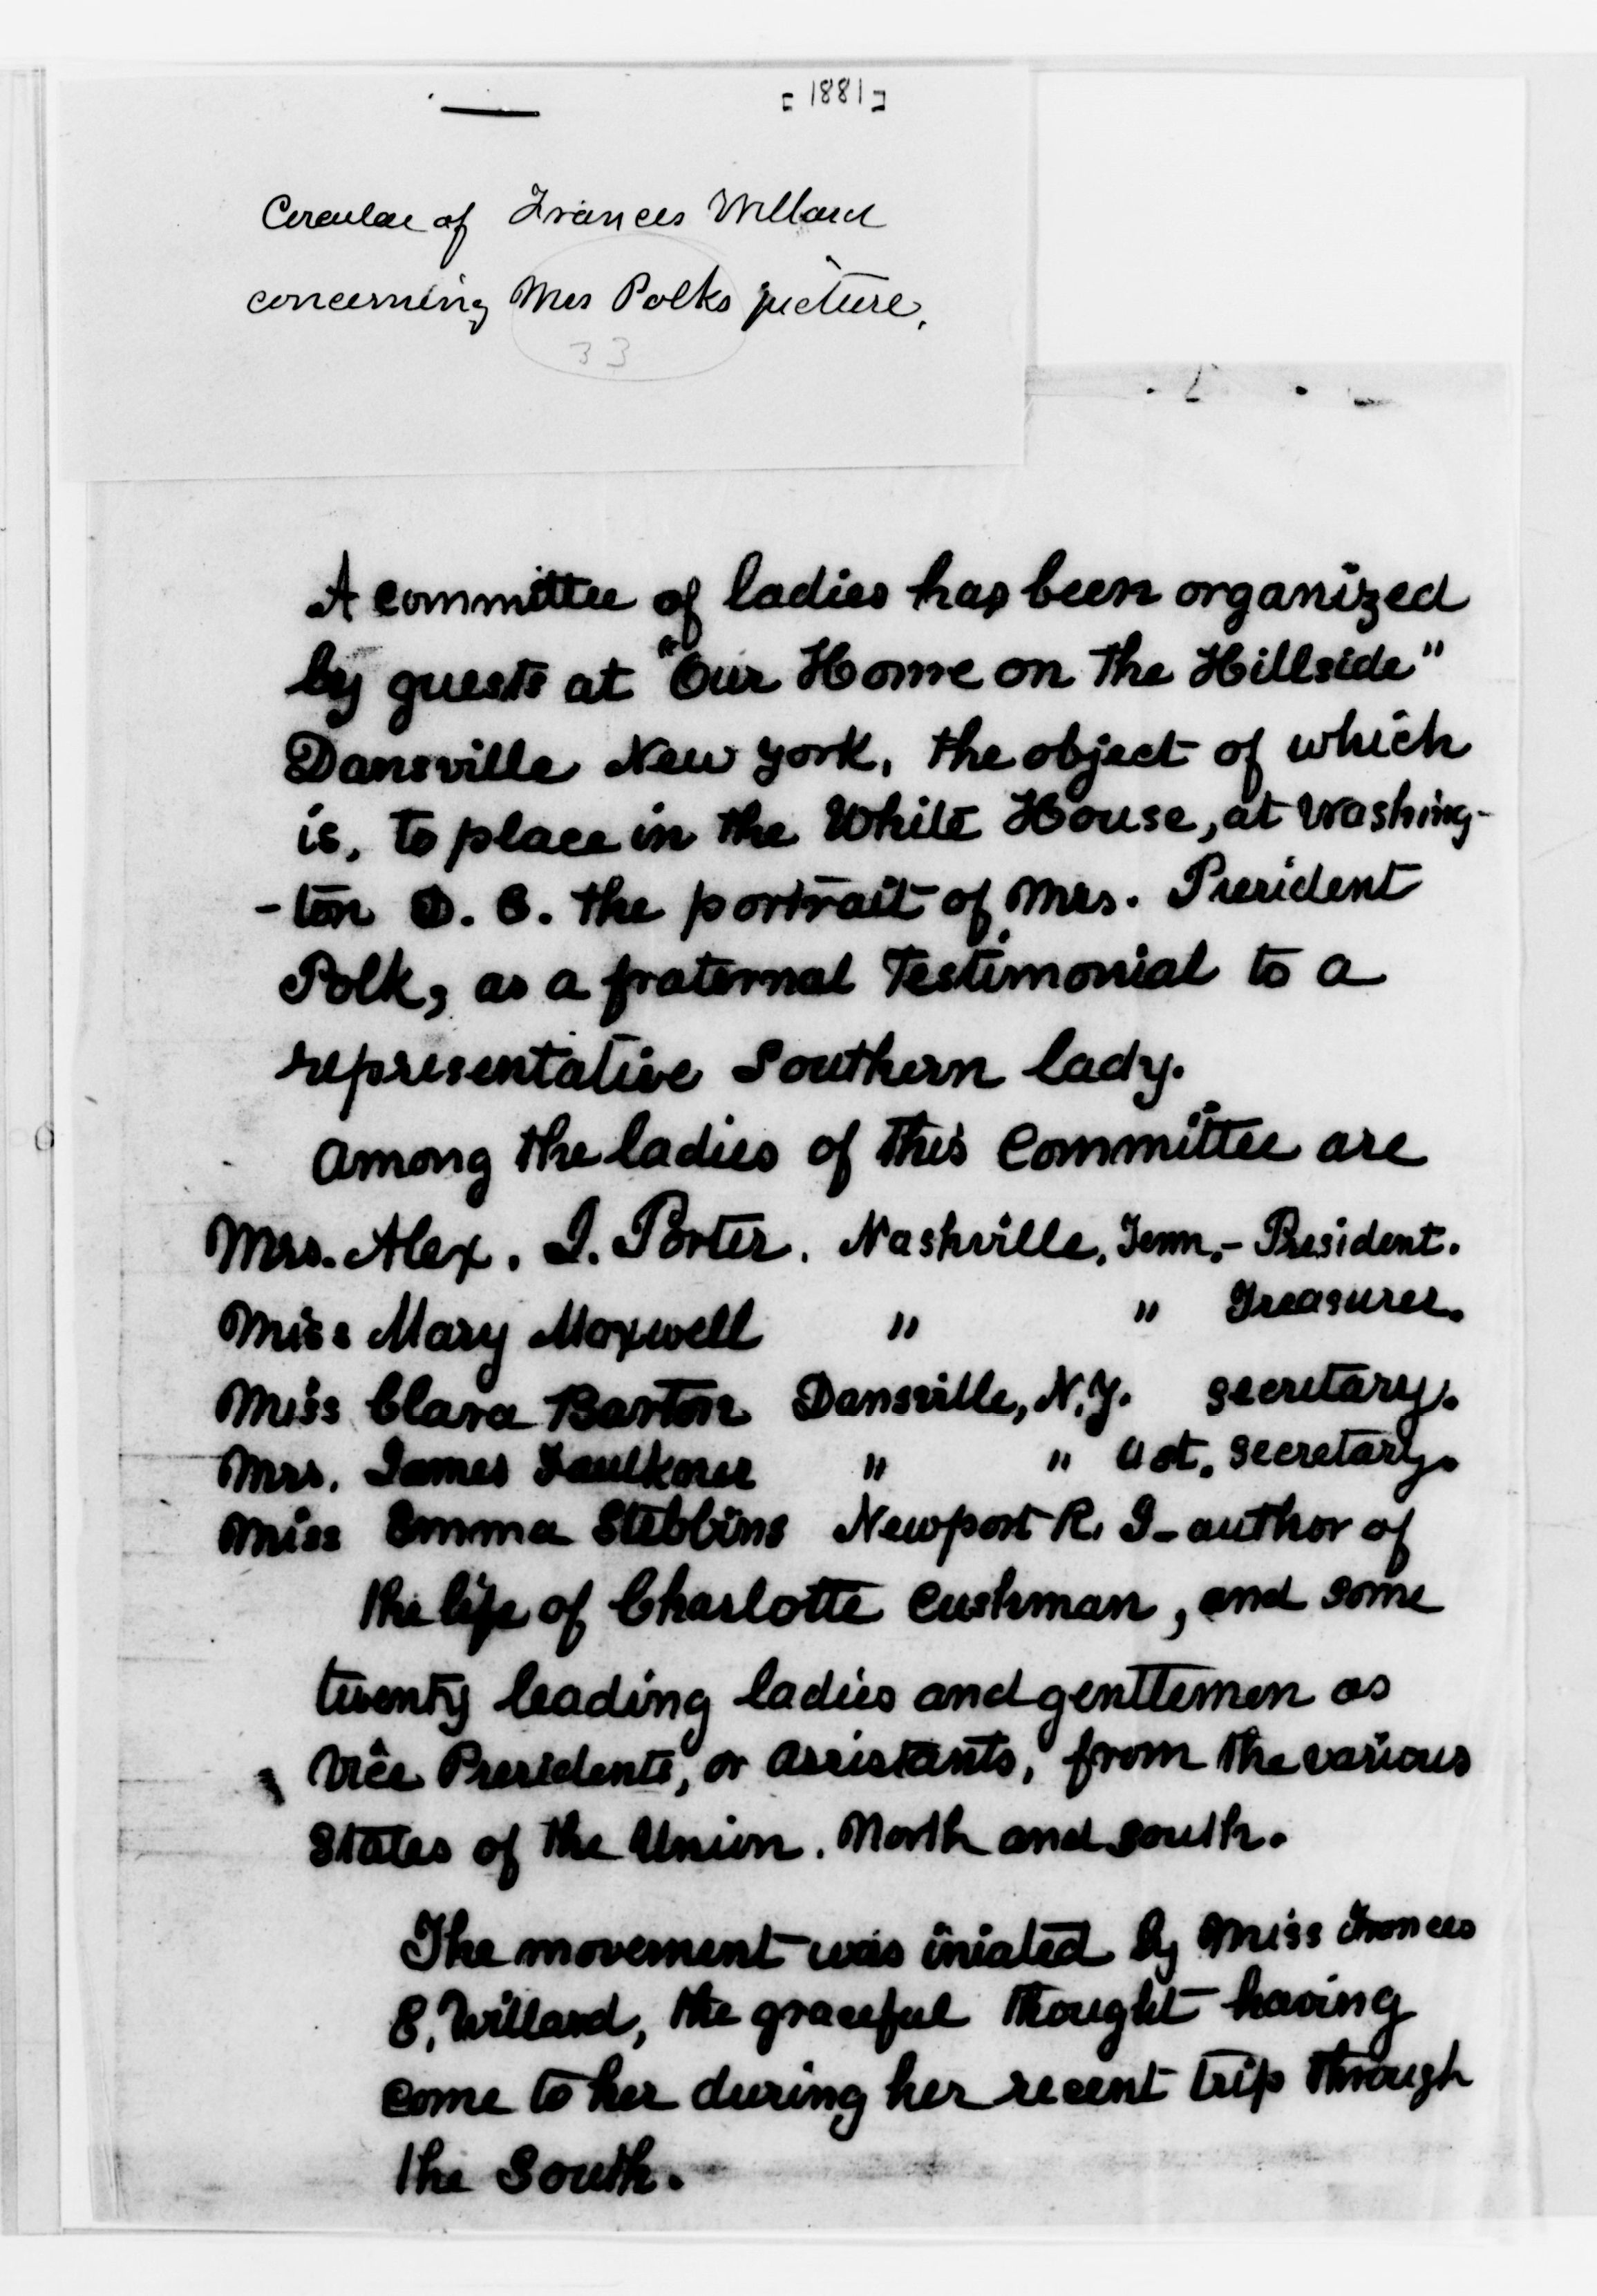 [1881]
Circular of Frances Willard
concerning Mrs Polks picture.
33
A committee of ladies has been organized
by guests at "Our Home on the Hillside"
Dansville New York, the object of which
is, to place in the White House, at Washing-
-ton D. C. the portrait of Mrs. President
Polk, as a fraternal Testimonial to a
representative Southern lady.
Among the ladies of this Committee are
Mrs. Alex. I. Porter. Nashville, Tenn. - President.
Miss Mary Maxwell " " Treasurer.
Miss Clara Barton Dansville, N.Y. secretary.
Mrs. James Faulkner " " Ast. Secretary.
Miss Emma Stebbins Newport R. I - author of
the life of Charlotte Cushman, and some
twenty leading ladies and genttemen as
Vice Presidents, or assistants, from the various
States of the Union. North and South.
The movement was iniated by Miss Frances
E. Willard, the graceful thought having
come to her during her recent trip through
the South.